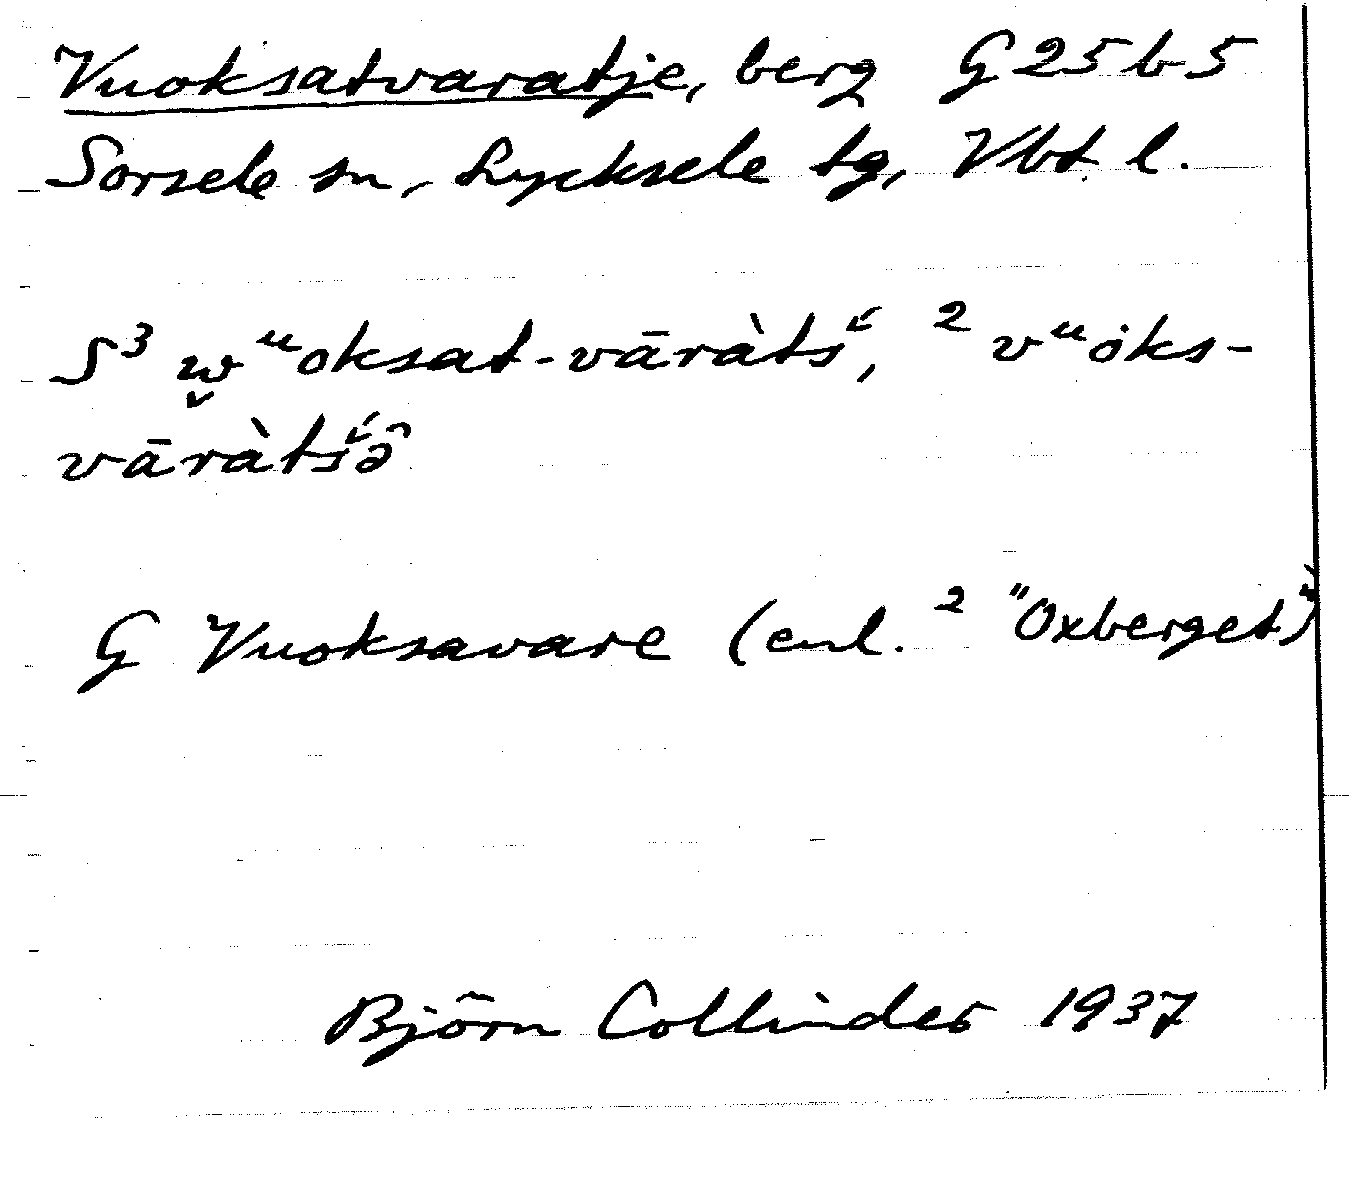 Vuoksatvaratje, berg G 25 b 5
Sorsele sn, Lycksele tg, Vbt. l.
S³ w̬ᵘoksat-vāràtś̌, ² vᵘȯks-
vāràtś̌ə̂
G Vuoksavare (enl. ² "Oxberget")
Björn Collinder 1937